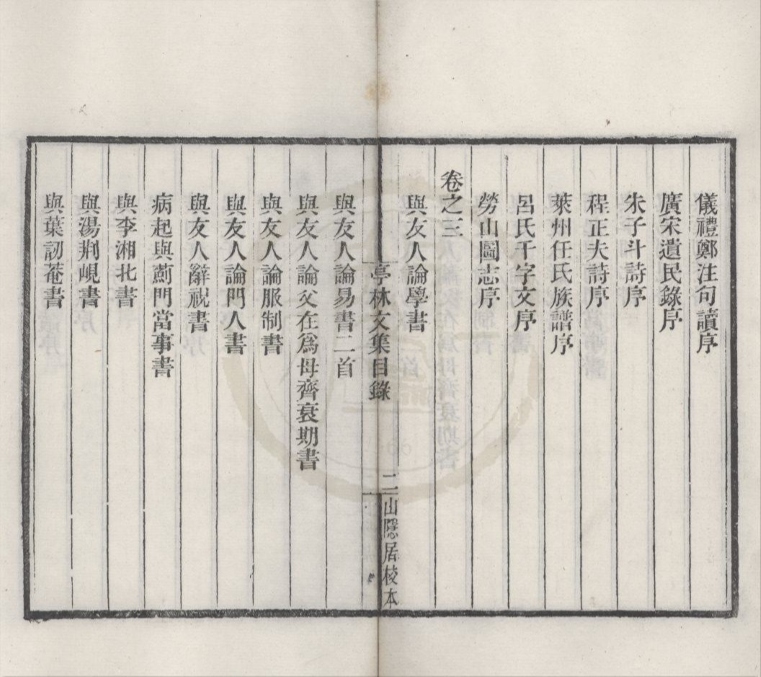 儀禮鄭注句讀序
廣宋遺民錄序
朱子斗詩序
程正夫詩序
萊州任氏族譜序
呂氏千字文序
勞山圖志序
卷之三
與友人論學書
亭林文集目錄 二 山隱居校本
與友人論易書二首
與友人論父在爲母齊衰期書
與友人論服制書
與友人論門人書
與友人辭祝書
病起與薊門當事書
與李湘北書
與湯荆峴書
與葉訒菴書